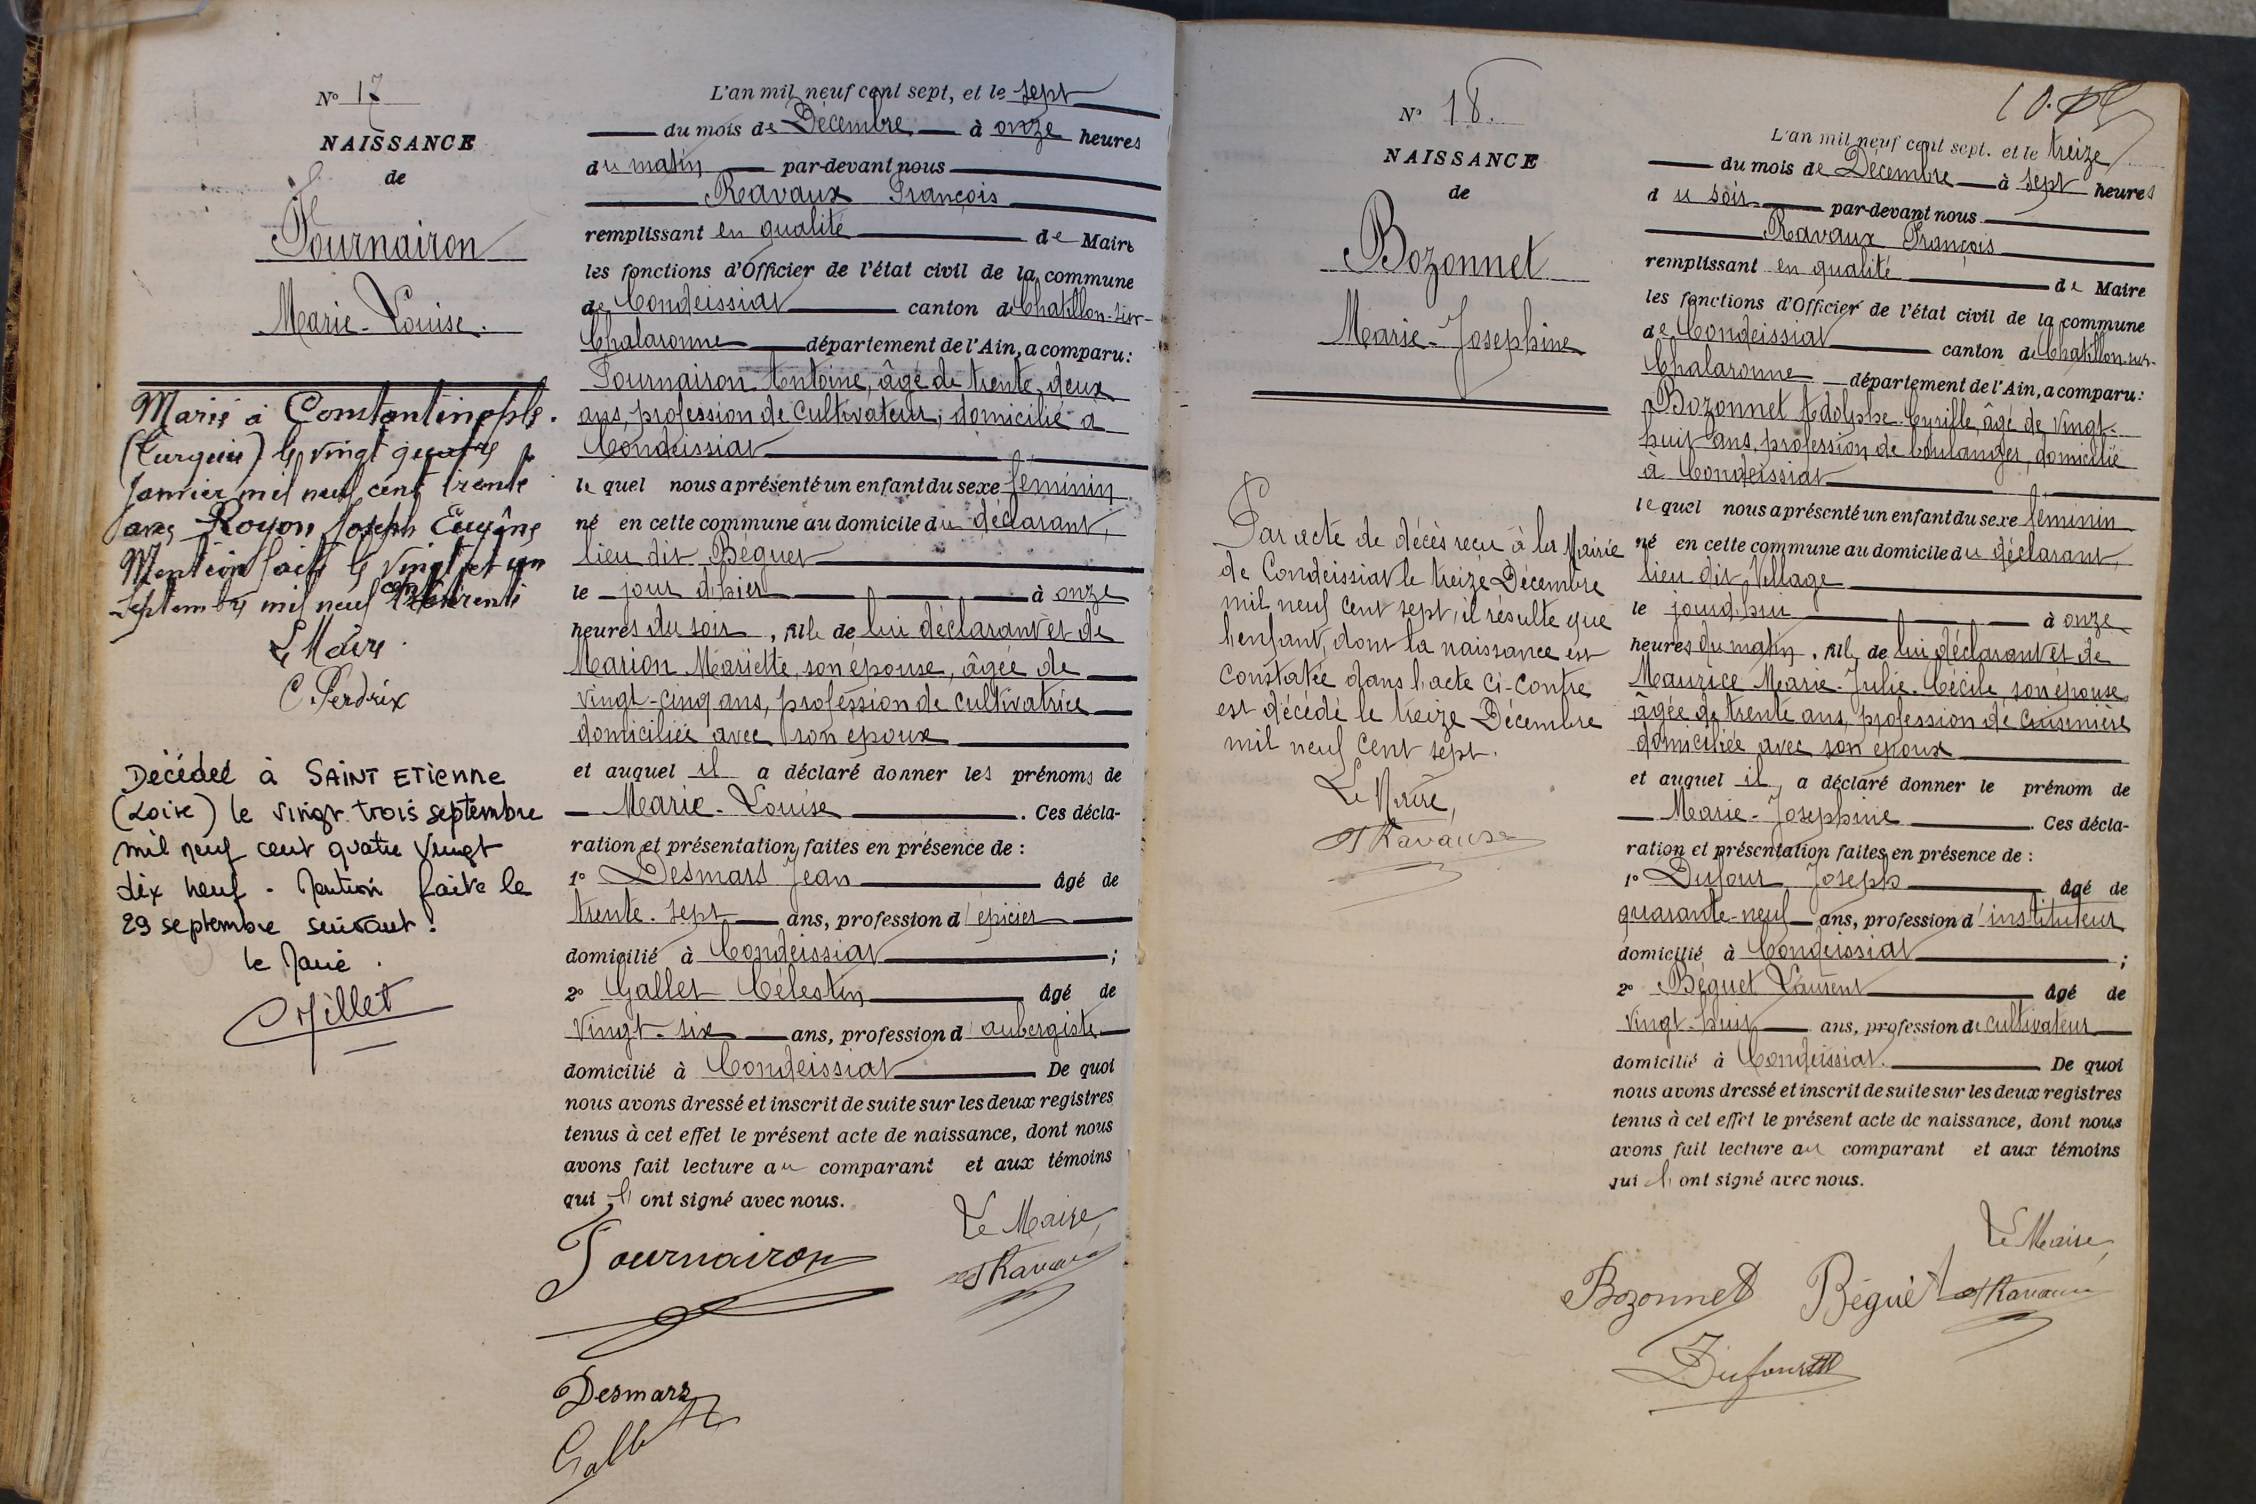 N° 17
NAISSANCE
de
Tournairon
Marie-Louise.
Marié à Constantinople.
(Turquie) le vingt quatre
Janvier mil neuf cent trente
avec Royon Joseph Eugène
Mention faite le vingt et un
septembre mil neuf cent trente
Le Maire
C. Perdrix
Décédée à SAINT ETIENNE
(Loire) le vingt trois septembre
mil neuf cent quatre vingt
dix neuf - Mention faite le
29 septembre suivant.
le Maire.
Millet
L'an mil neuf cent sept, et le sept
du mois de Décembre à onze heures
du matin par-devant nous
Ravaux François
remplissant en qualité de Maire
les fonctions d'Officier de l'état civil de la commune
de Condeissiat canton de Chatillon-sur-
Chalaronne département de l'Ain, a comparu:
Tournairon Antoine, âgé de trente-deux
ans, profession de Cultivateur, domicilié à
Condeissiat
lequel nous a présenté un enfant du sexe féminin
né en cette commune au domicile du déclarant,
lieu dit Béguet
le jour d'hier à onze
heures du soir, fille de lui déclarant et de
Marion Mariette, son épouse, âgée de
vingt-cinq ans, profession de cultivatrice
domiciliée avec son époux
et auquel il a déclaré donner les prénoms de
Marie-Louise. Ces décla-
ration et présentation faites en présence de:
1° Desmars Jean âgé de
trente-sept ans, profession d'épicier
domicilié à Condeissiat;
2° Gallet Célestin âgé de
vingt-six ans, profession d'aubergiste
domicilié à Condeissiat De quoi
nous avons dressé et inscrit de suite sur les deux registres
tenus à cet effet le présent acte de naissance, dont nous
avons fait lecture au comparant et aux témoins
qui l'ont signé avec nous.
Le Maire,
Tournairon Ravaux
Desmars
Gallet
N° 18.
NAISSANCE
de
Bozonnet
Marie-Josephine
Par acte de décès reçu à la Mairie
de Condeissiat le treize Décembre
mil neuf cent sept, il résulte que
l'enfant, dont la naissance est
constatée dans l'acte ci-contre
est décédé le treize Décembre
mil neuf cent sept.
Le Maire,
Ravaux
10.
L'an mil neuf cent sept. et le treize
du mois de Décembre à sept heures
du soir par-devant nous
Ravaux François
remplissant en qualité de Maire
les fonctions d'Officier de l'état civil de la commune
de Condeissiat canton de Chatillon-sur-
Chalaronne département de l'Ain, a comparu:
Bozonnet Adolphe-Cyrille, âgé de vingt-
huit ans, profession de boulanger, domicilié
à Condeissiat
lequel nous a présenté un enfant du sexe féminin
né en cette commune au domicile du déclarant,
lieu dit Village
le jourd'hui à onze
heures du matin, fille de lui déclarant et de
Maurice Marie-Julie-Cécile, son épouse
âgée de trente ans, profession de cuisinière
domiciliée avec son époux
et auquel il a déclaré donner le prénom de
Marie-Josephine. Ces décla-
ration et présentation faites en présence de:
1° Dufour Joseph âgé de
quarante-neuf ans, profession d'instituteur
domicilié à Condeissiat;
2° Béguet Laurent âgé de
vingt-huit ans, profession de cultivateur
domicilié à Condeissiat. De quoi
nous avons dressé et inscrit de suite sur les deux registres
tenus à cet effet le présent acte de naissance, dont nous
avons fait lecture au comparant et aux témoins
qui l'ont signé avec nous.
Le Maire,
Bozonnet Béguet Ravaux
Dufour